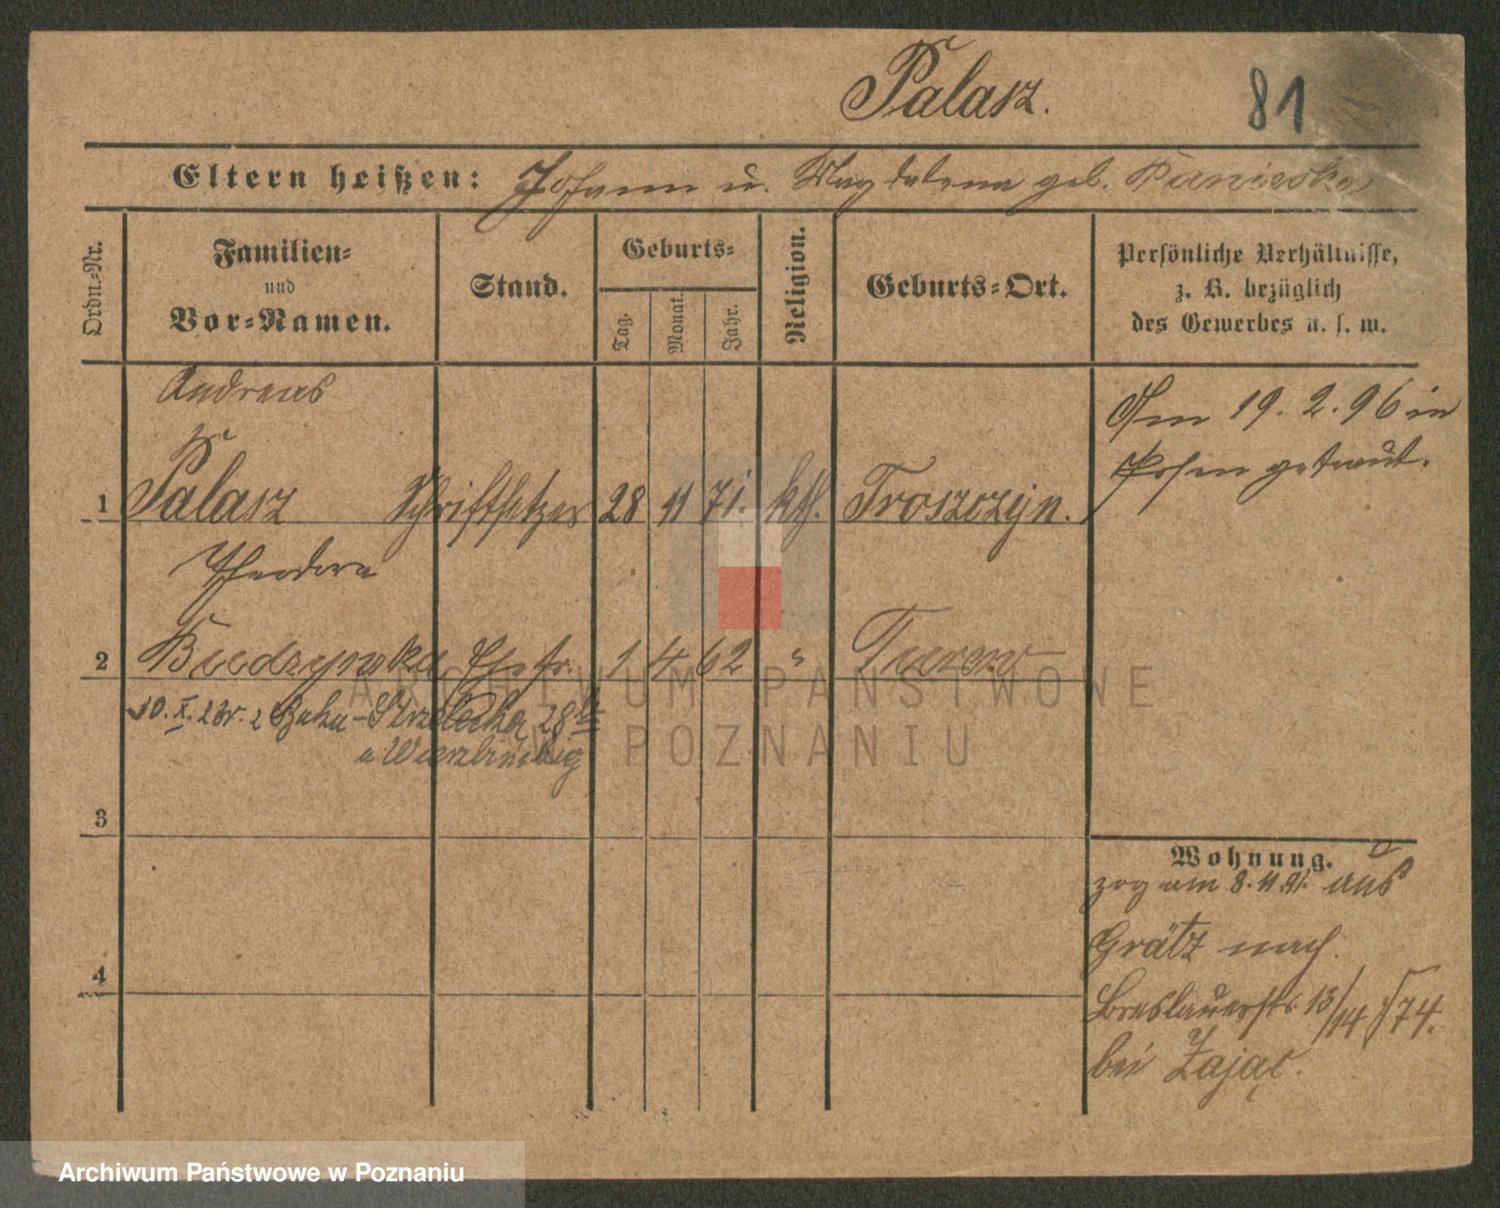 Palasz.
81
Eltern heißen: Johann u. Magdalena geb.
Ordn.-Nr.
Familien-
und
Vor-Namen.
Stand.
Geburts-
Tag.
Monat.
Jahr.
Religion.
Geburts-Ort.
Persönliche Verhältnisse,
z. B. bezüglich
des Gewerbes u. s. w.
Andreas
1 Palasz Schriftsetzer 28 11 71. kth. Troszczyn.
Am 19. 2. 96 in
Posen getraut.
Theodora
2 Budzynska Ehefr. 1 4 62 "
10. X.
3
4
Wohnung.
zog am 8. 11 91. aus
Grätz nach
Breslauerstr. 13/14
74.
bei Zając.
ARCHIWUM PAŃSTWOWE
W POZNANIU
Archiwum Państwowe w Poznaniu